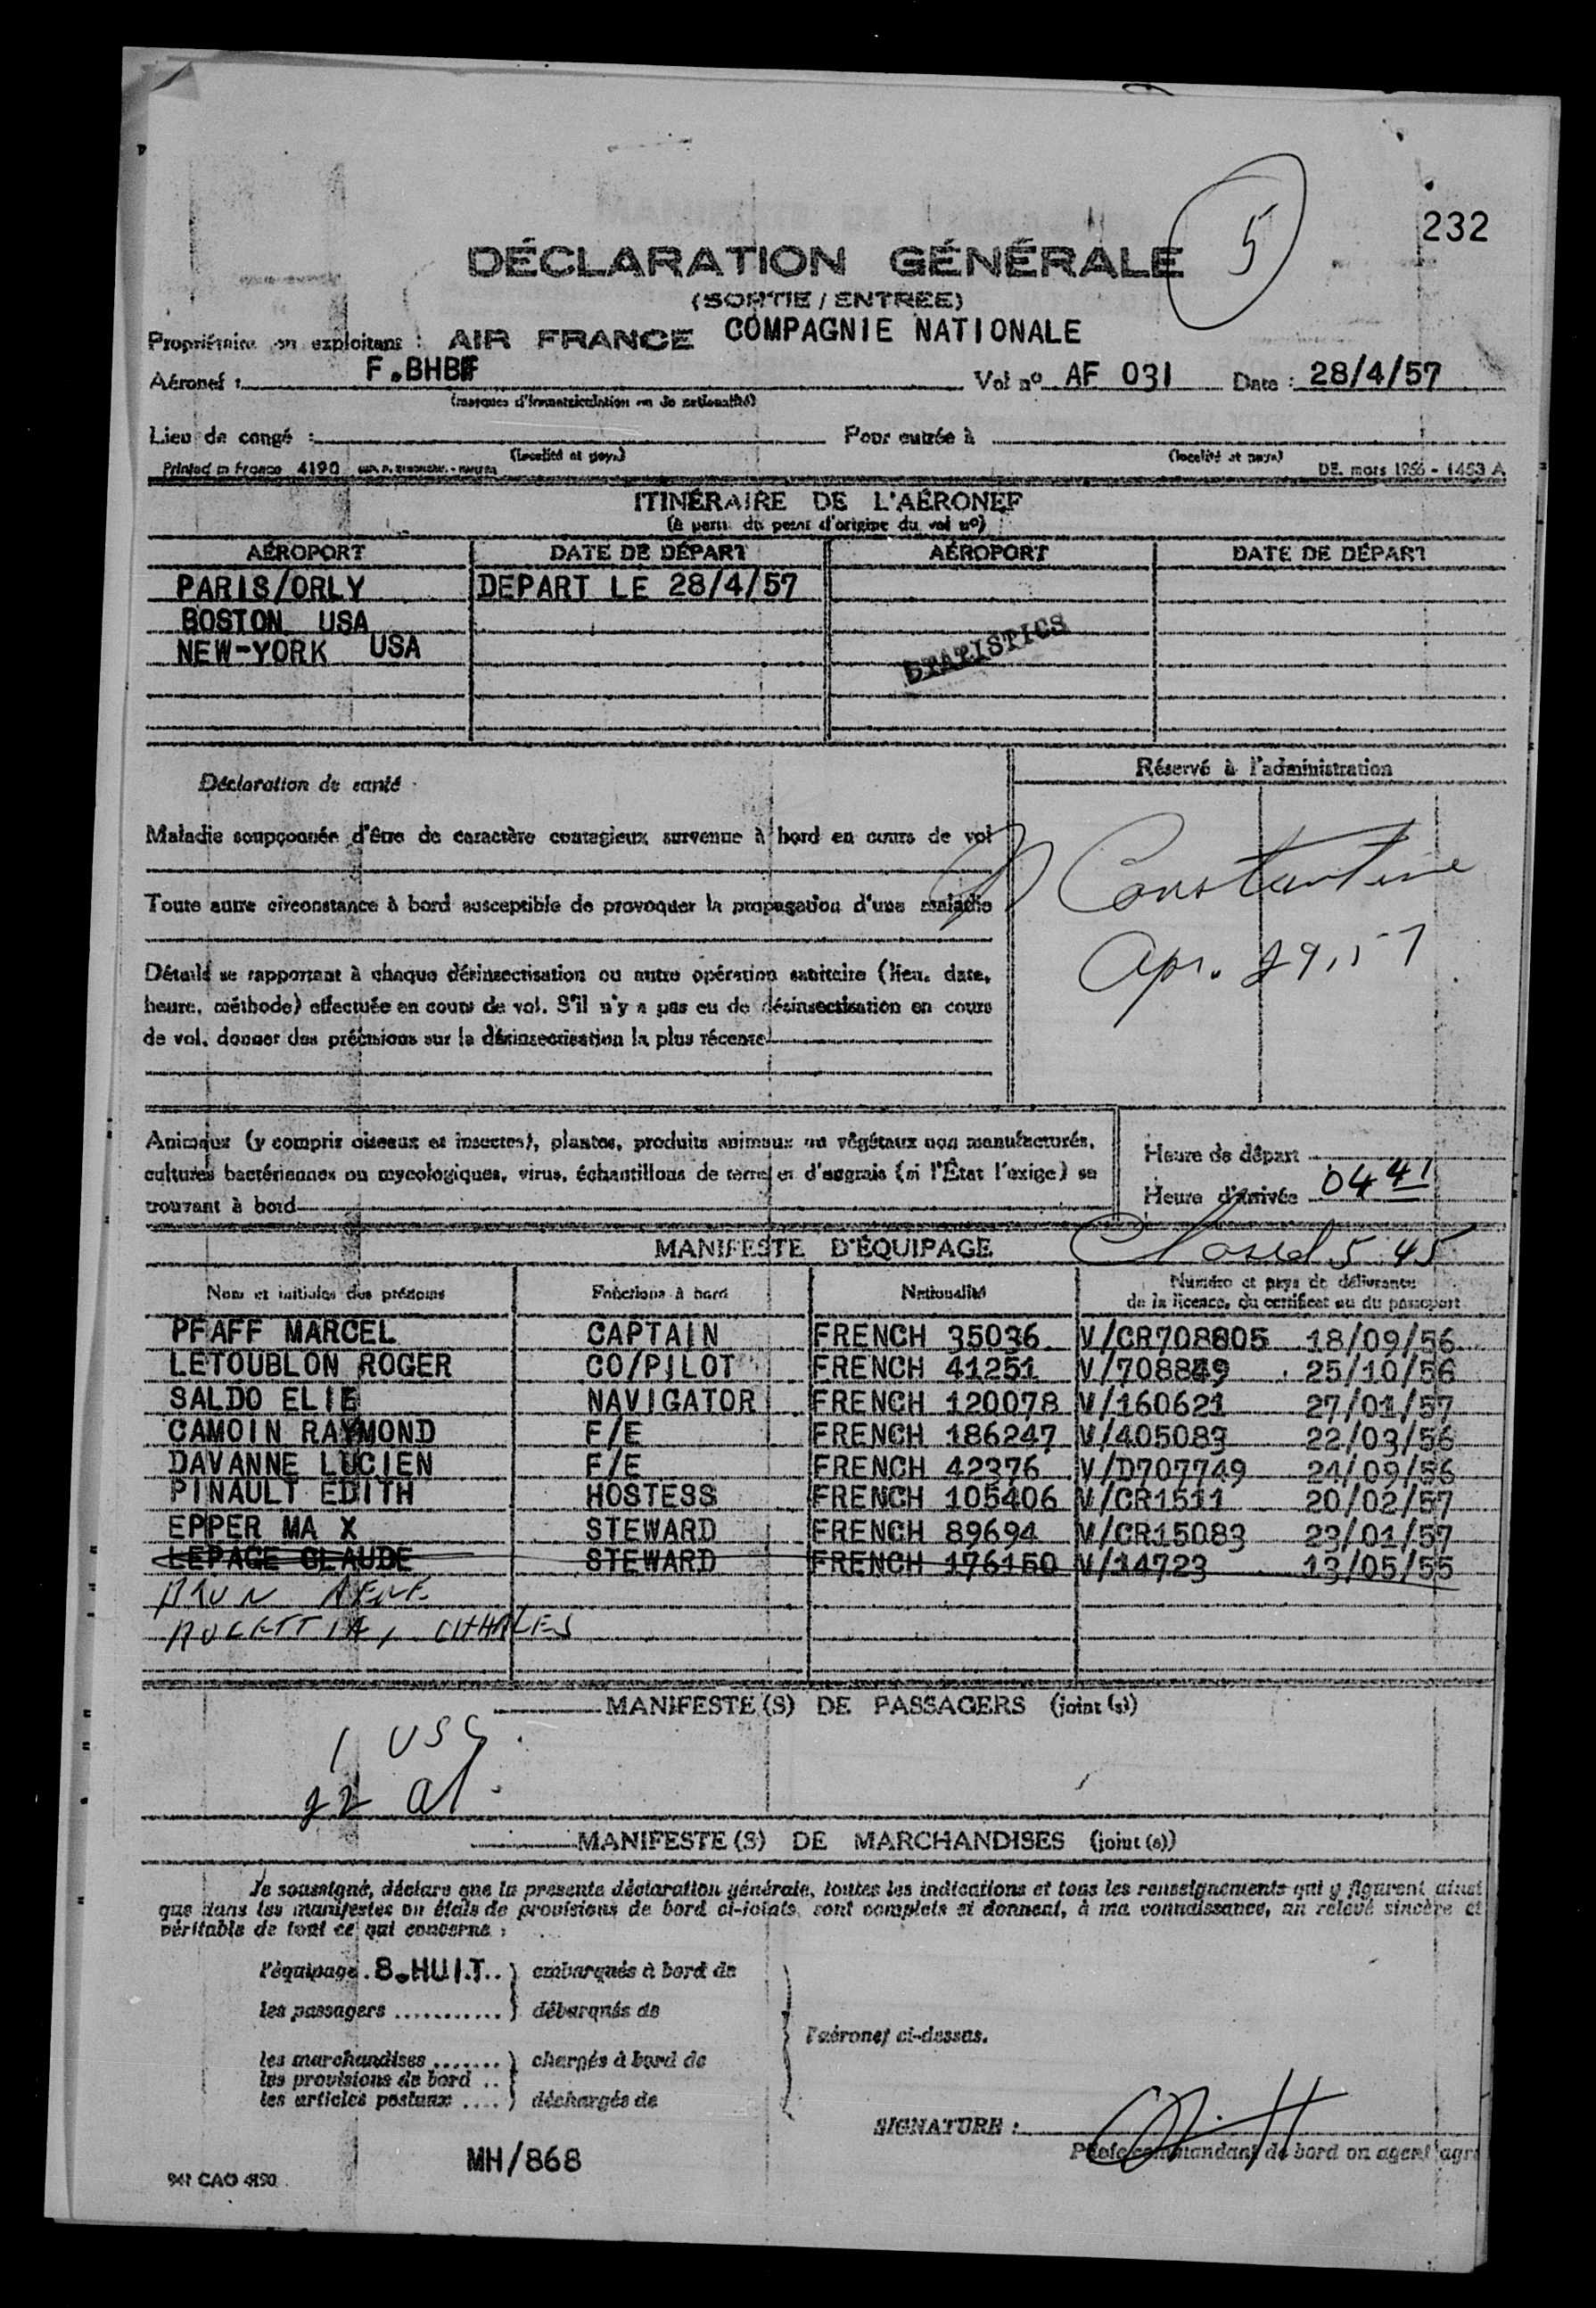 232
5
DÉCLARATION GÉNÉRALE
(SORTIE / ENTREE)
Propriétaire ou exploitant : AIR FRANCE COMPAGNIE NATIONALE
Aéronef : F.BHBF Vol nº AF 031 Date : 28/4/57
(marques d'immatriculation ou de nationalité)
Lieu de congé : Pour entrée à
(localité et pays) (localité et pays)
Printed in France 4190 DE. mars 1956 - 1453 A
ITINÉRAIRE DE L'AÉRONEF
(à partir du point d'origine du vol nº)
AÉROPORT DATE DE DÉPART AÉROPORT DATE DE DÉPART
PARIS/ORLY DEPART LE 28/4/57
BOSTON USA
NEW-YORK USA
STATISTICS
Déclaration de santé
Réservé à l'administration
Maladie soupçonnée d'être de caractère contagieux survenue à bord en cours de vol
Toute autre circonstance à bord susceptible de provoquer la propagation d'une maladie
Constantine
Apr. 29, 57
Détails se rapportant à chaque désinsectisation ou autre opération sanitaire (lieu, date,
heure, méthode) effectuée en cours de vol. S'il n'y a pas eu de désinsectisation en cours
de vol, donner des précisions sur la désinsectisation la plus récente
Animaux (y compris oiseaux et insectes), plantes, produits animaux ou végétaux non manufacturés,
cultures bactériennes ou mycologiques, virus, échantillons de terre et d'engrais (si l'État l'exige) se
trouvant à bord
Heure de départ
Heure d'arrivée 0441
Closed 5 45
MANIFESTE D'ÉQUIPAGE
Nom et initiales des prénoms Fonctions à bord Nationalité Numéro et pays de délivrance
de la licence, du certificat ou du passeport
PFAFF MARCEL CAPTAIN FRENCH 35036 V/CR708805 18/09/56
LETOUBLON ROGER CO/PILOT FRENCH 41251 V/708849 25/10/56
SALDO ELIE NAVIGATOR FRENCH 120078 V/160621 27/01/57
CAMOIN RAYMOND F/E FRENCH 186247 V/405083 22/03/56
DAVANNE LUCIEN F/E FRENCH 42376 V/D707749 24/09/56
PINAULT EDITH HOSTESS FRENCH 105406 V/CR1511 20/02/57
EPPER MA X STEWARD FRENCH 89694 V/CR15083 23/01/57
LEPAGE CLAUDE STEWARD FRENCH 176150 V/14723 13/05/55
CHARLES
MANIFESTE(S) DE PASSAGERS (joint(s))
1 USC
22 al
MANIFESTE(S) DE MARCHANDISES (joint(s))
Je soussigné, déclare que la presente déclaration générale, toutes les indications et tous les renseignements qui y figurent ainsi
que dans les manifestes ou états de provisions de bord ci-joints, sont complets et donnent, à ma connaissance, un relevé sincère et
véritable de tout ce qui concerne :
l'équipage . 8.HUIT.. ) embarqués à bord de
les passagers ........... ) débarqués de
l'aéronef ci-dessus.
les marchandises ....... ) chargés à bord de
les provisions de bord ..
les articles postaux .... ) déchargés de
SIGNATURE :
Pilote commandant de bord ou agent agré
MH/868
941 CAO 4190